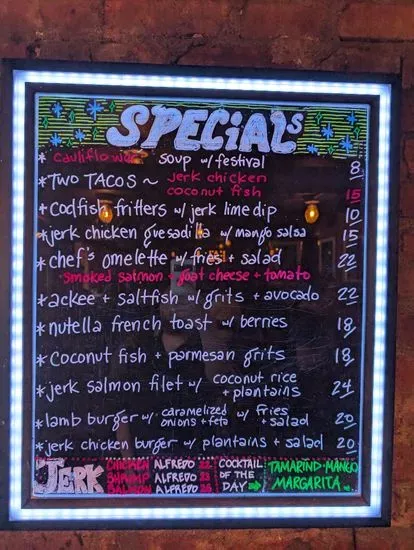 SPECIALS
* Cauliflower soup w/ festival 8
* TWO TACOS ~ Jerk chicken
coconut fish 15
* codfish fritters w/ jerk lime dip 10
* jerk chicken quesadilla w/ mango salsa 15
* chef's omelette w/ fries + salad 22
smoked salmon + goat cheese + tomato
* ackee + saltfish w/ grits + avocado 22
* nutella french toast w/ berries 18
* Coconut fish + parmesan grits 18
* jerk salmon filet w/ coconut rice + plantains 24
* lamb burger w/ caramelized onions + feta w/ fries + salad 20
* jerk chicken burger w/ plantains + salad 20
JERK
CHICKEN ALFREDO 22
SHRIMP ALFREDO 23
SALMON ALFREDO
COCKTAIL OF THE DAY → TAMARIND-MANGO MARGARITA